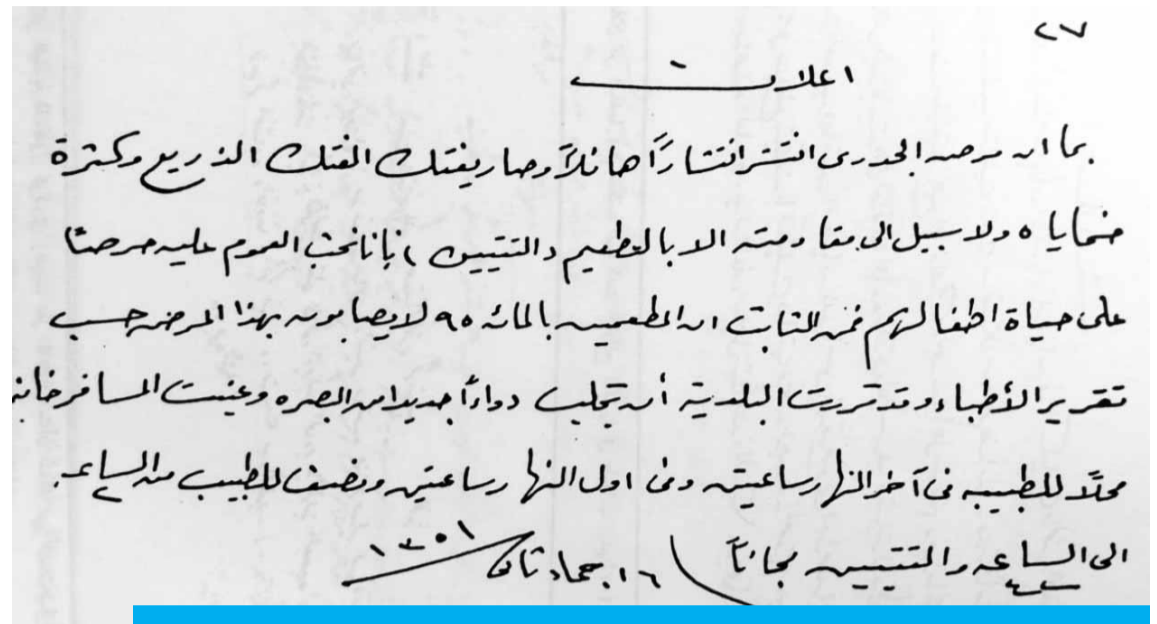 ٢٧
اعلان
بما ان مرض الجدرى انتشر انتشاراً هائلاً وصار يفتك الفتك الذريع وكثرة
ضحاياه ولا سبيل الى مقاومته الا بالتطعيم والتتيين فاننا نحث العموم عليه حرصاً
على حياة اطفالهم فمن الثابت ان المطعمين بالمائه ٩٥ لايصابون بهذا المرض حسب
تقرير الأطباء وقد قررت البلدية أن تجلب دواءاً جديدا من البصره وعينت المسافرخانه
محلاً للطبيب فى آخر النهار ساعتين وفى اول النهار ساعتين ونصف للطبيب من الساعه
الى الساعه والتتيين مجاناً ١٦ جماد ثانى ١٣٥١